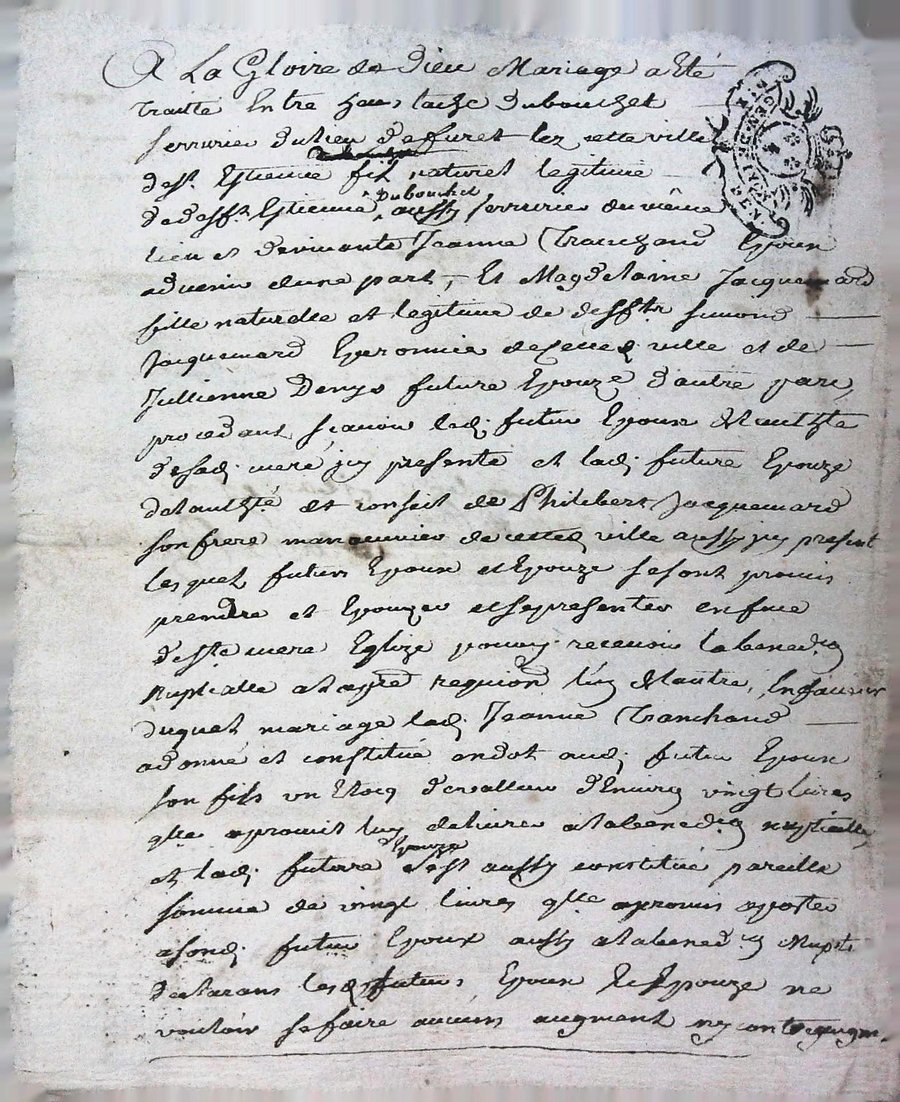 A La Gloire de Dieu Mariage a Eté
traitté Entre Eustache Dubouchet
serrurier du lieu de furet lez cette ville
de st Estienne fils naturel legitime
de defft Estienne Dubouchet aussy serrurier du même
lieu et de vivante Jeanne Tranchand Epoux
advenir d'une part, Et Magdelaine Jacquemard
fille naturelle et legitime de defft simond
Jacquemard Eperonnier de cette ville et de
Jullienne Denys future Epouze d'autre part,
procedant sçavoir led. futur Epoux de l'authte
de sad. mere jcy presente et lad. future Epouze
de l'authté et conseil de Philibert Jacquemard
son frere manouvrier de cette ville aussy jcy present
lesquels futurs Epoux et Epouze se sont promis
prendre et Epouzer et se presenter en face
de ste mere Eglize pour y recevoir la bened.on
Nuptialle a la pre requion l'un de l'autre, En faveur
duquel mariage lad. Jeanne Tranchand
a donné et constitué en dot aud. futur Epoux
son fils un Etocq de valleur d'Environ vingt livres
qlle a promis luy delivrer a la bened.on nuptialle
et lad. future Epouze s'est aussy constitué pareille
somme de vingt livres qlle a promis aporter
a sond. futur Epoux aussy a la bened.on Nuptle
declarans lesd. futurs Epoux et Epouze ne
vouloir se faire aucuns augment ny contreaugm.